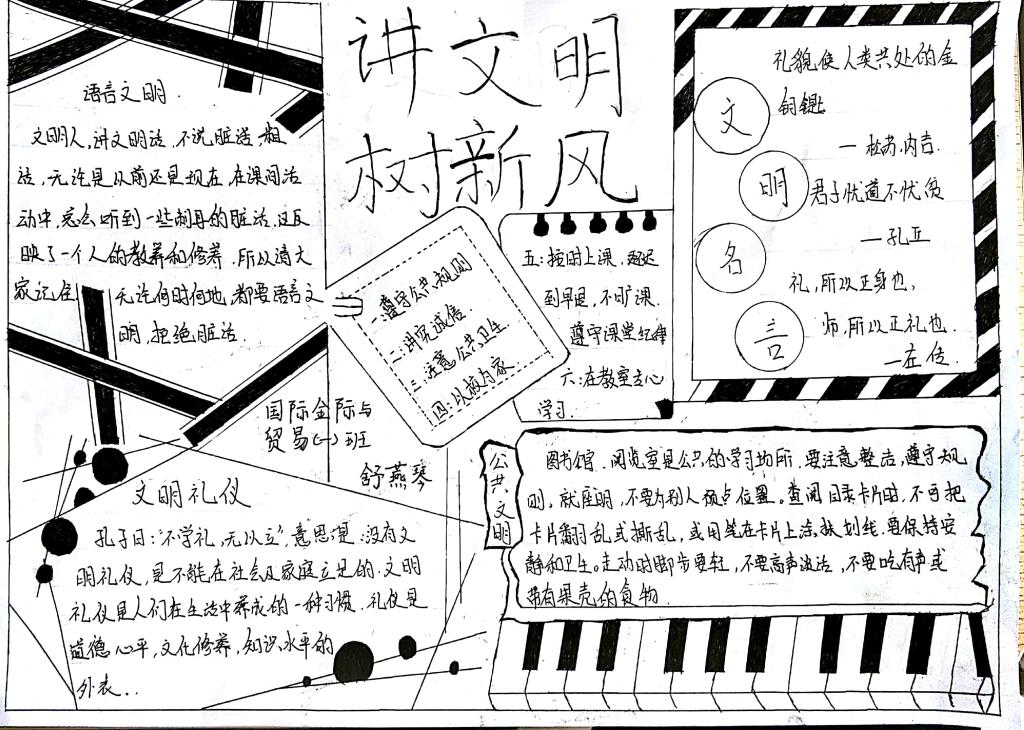 讲文明
树新风
语言文明.
文明人,讲文明话,不说脏话,粗
话,无论是从前还是现在,在课间活
动中,总么听到一些刺耳的脏话.这反
映了一个人的教养和修养.所以请大
家记住 无论何时何地,都要语言文
明,拒绝脏话.
一.遵守公共规则
二.讲究诚信
三.注意公共卫生
四:以校为家
五:按时上课,
到早退,不旷课.
遵守课堂纪律
六:在教室专心
学习.
文
明
名
言
礼貌使人类共处的金
钥匙
— 松苏.内吉.
君子忧道不忧贫
—孔丘
礼,所以正身也,
师,所以正礼也.
—左传.
国际金际与
贸易(一)班
舒燕琴
文明礼仪
孔子曰:“不学礼,无以立”,意思是:没有文
明礼仪,是不能在社会及家庭立足的.文明
礼仪是人们在生活中养成的一种习惯.礼仪是
道德心平,文化修养,知识水平的
外表...
公共文明
图书馆.阅览室是公共的学习场所,要注意整洁,遵守规
则,就座时,不要为别人预占位置。查阅目录卡片时,不可把
卡片翻乱或撕乱,或用笔在卡片上涂抹划线.要保持安
静和卫生.走动时脚步要轻,不要高声说话,不要吃有声或
带有果壳的食物.